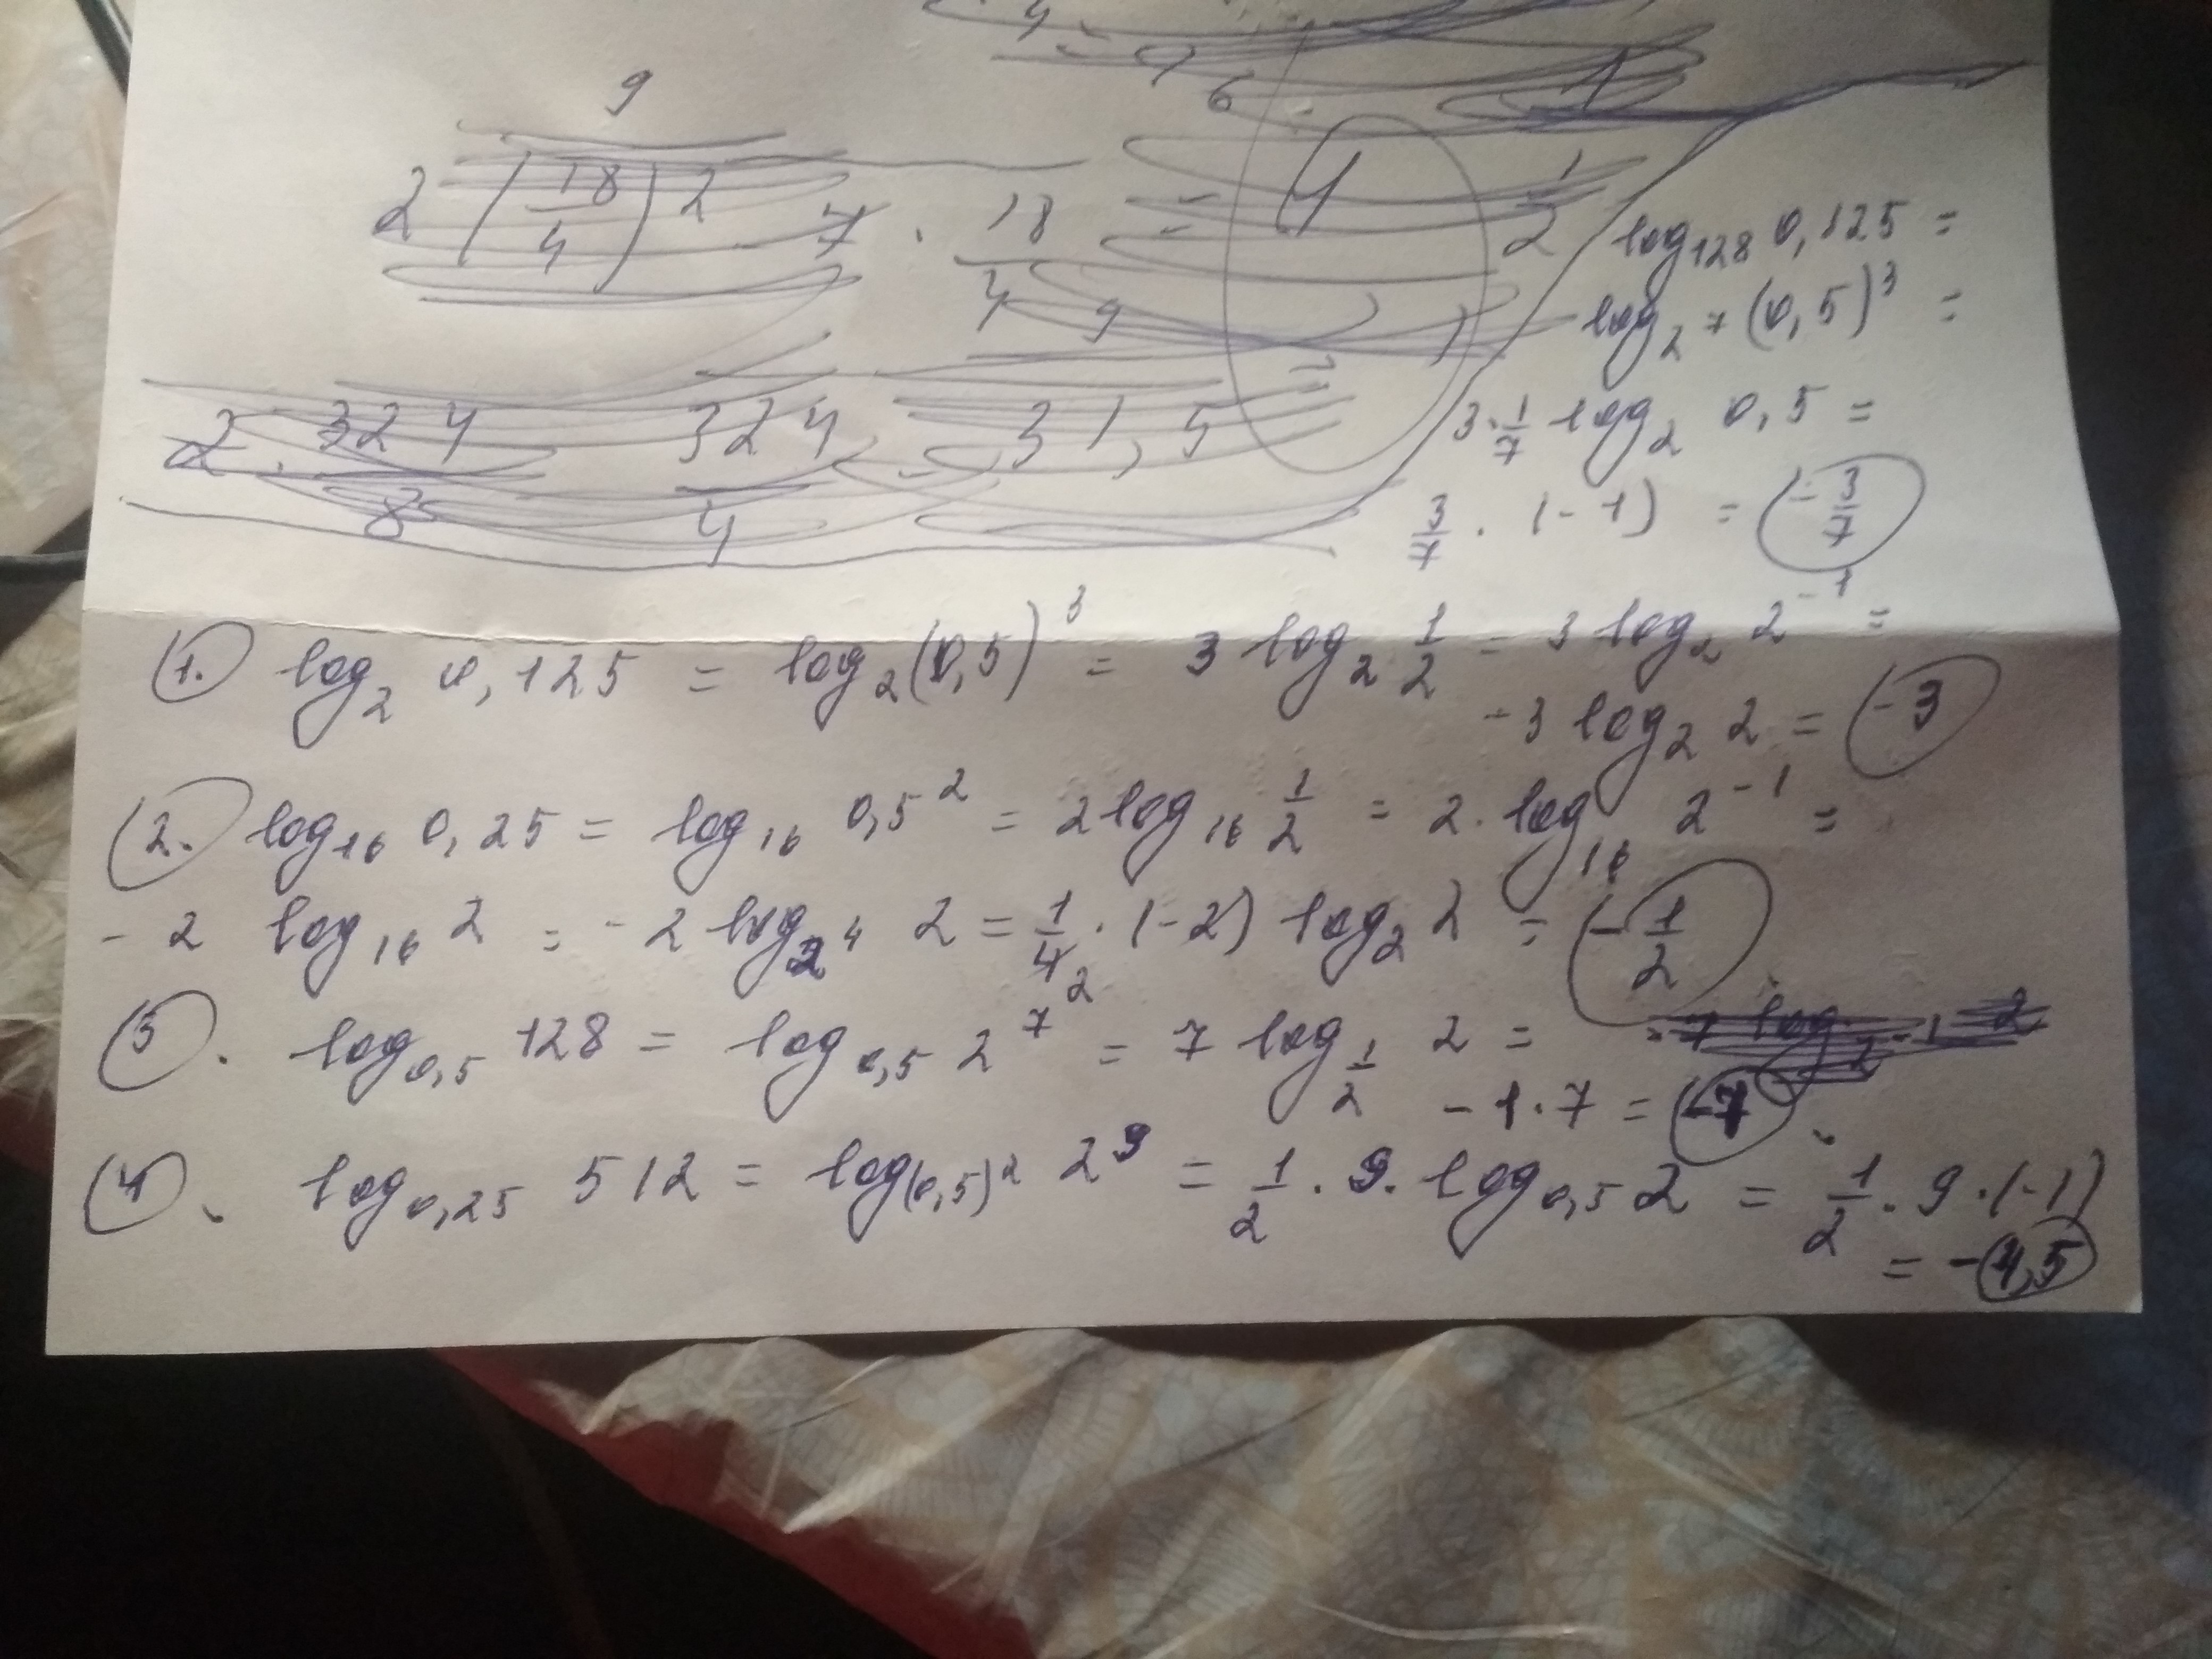 9
2 (18/4)2 - 7 · 18/4 =
2 · 324/8 324/4 - 31,5
log₁₂₈ 0,125 =
log₂⁷ (0,5)³ =
3·1/7 log₂ 0,5 =
3/7 · (-1) = -3/7
1. log₂ 0,125 = log₂(0,5)³ = 3 log₂ 1/2 = 3 log₂ 2⁻¹ =
-3 log₂ 2 = -3
2. log₁₆ 0,25 = log₁₆ 0,5² = 2 log₁₆ 1/2 = 2· log₁₆ 2⁻¹ =
- 2 log₁₆ 2 = - 2 log₂⁴ 2 = 1/4₂ · (-2) log₂ 2 = -1/2
3. log₀,₅ 128 = log₀,₅ 2⁷ = 7 log₁/₂ 2 =
-1·7 = -7
4. log₀,₂₅ 512 = log₍₀,₅₎² 2⁹ = 1/2 · 9· log₀,₅ 2 = 1/2 · 9 · (-1)
= -4,5